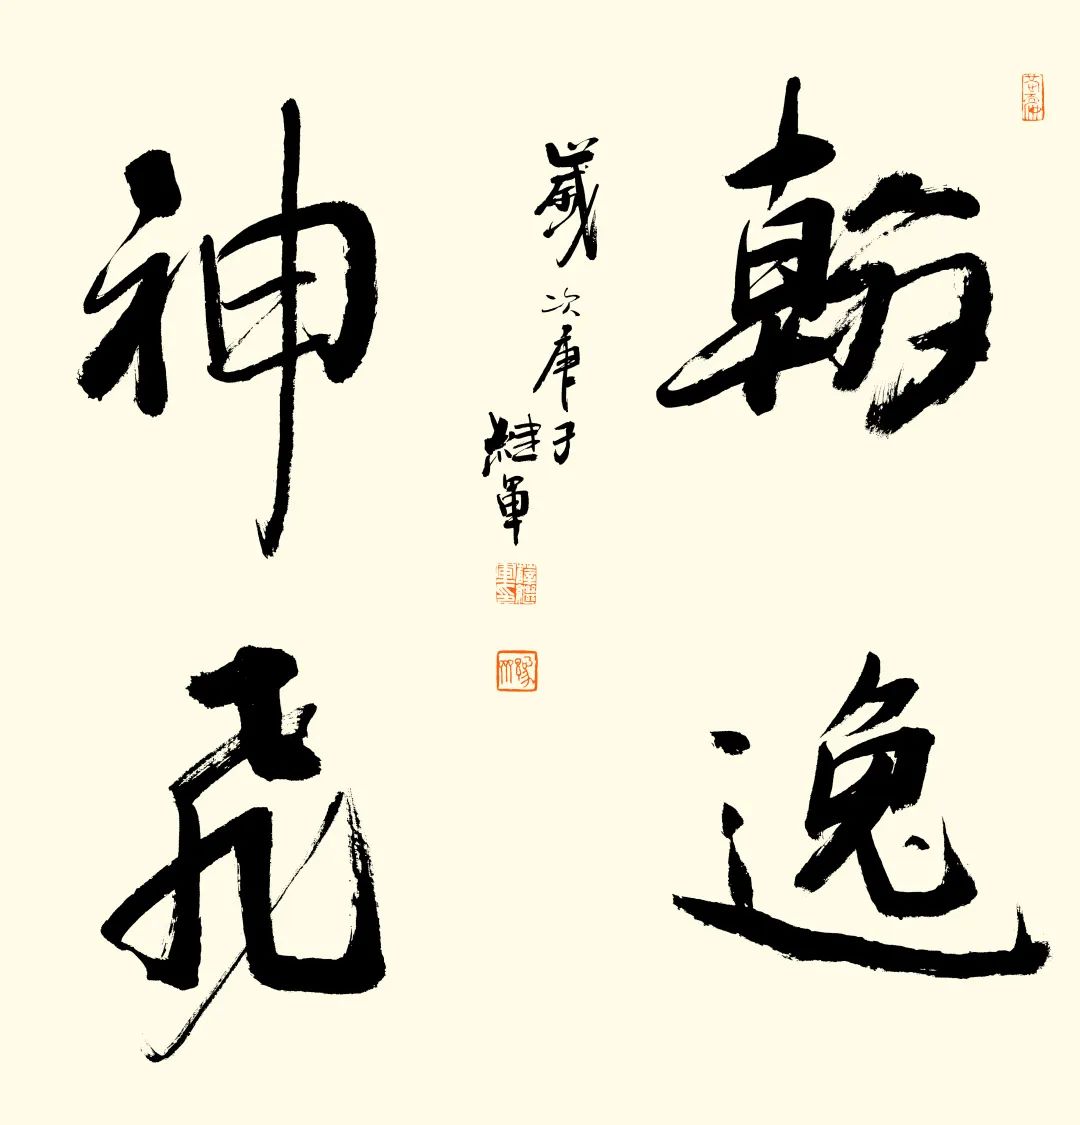 翰逸
神飛
歲次庚子
继軍